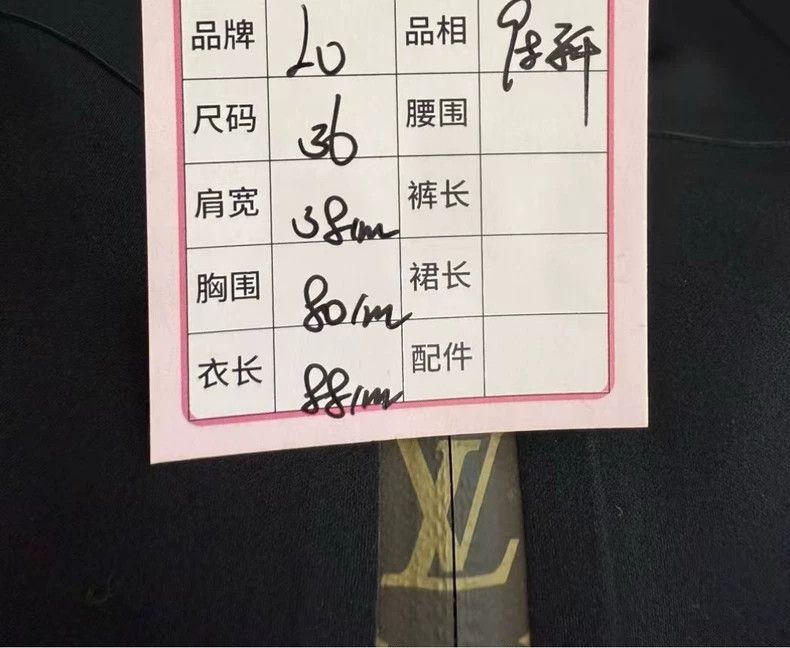 品牌 LV 品相
尺码 36 腰围
肩宽 38cm 裤长
胸围 80cm 裙长
衣长 88cm 配件
LV